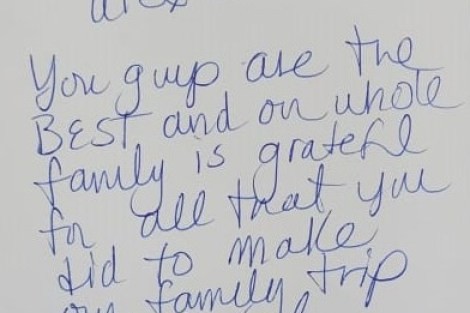 alex
You guys are the
BEST and our whole
family is grateful
for all that you
did to make
our family trip